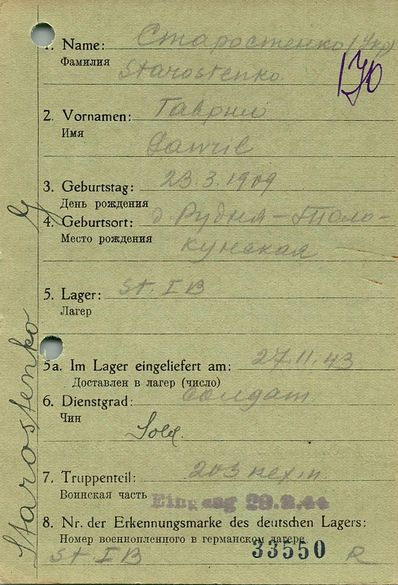 1. Name: Старостенко (Укр)
Фамилия
Starostenko
170
2. Vornamen: Гаврил
Имя
Gawril
3. Geburtstag: 23.3.1909
День рождения
4. Geburtsort: д. Рудня-Толо-
Место рождения
кунская
5. Lager: St. I B
Лагер
5a. Im Lager eingeliefert am: 27.11.43
Доставлен в лагер (число)
6. Dienstgrad: солдат
Чин
Sold.
7. Truppenteil: 203
Воинская часть
Eingang
8. Nr. der Erkennungsmarke des deutschen Lagers:
Номер военнопленного в германском лагере
St I B 33550 R
Starostenko